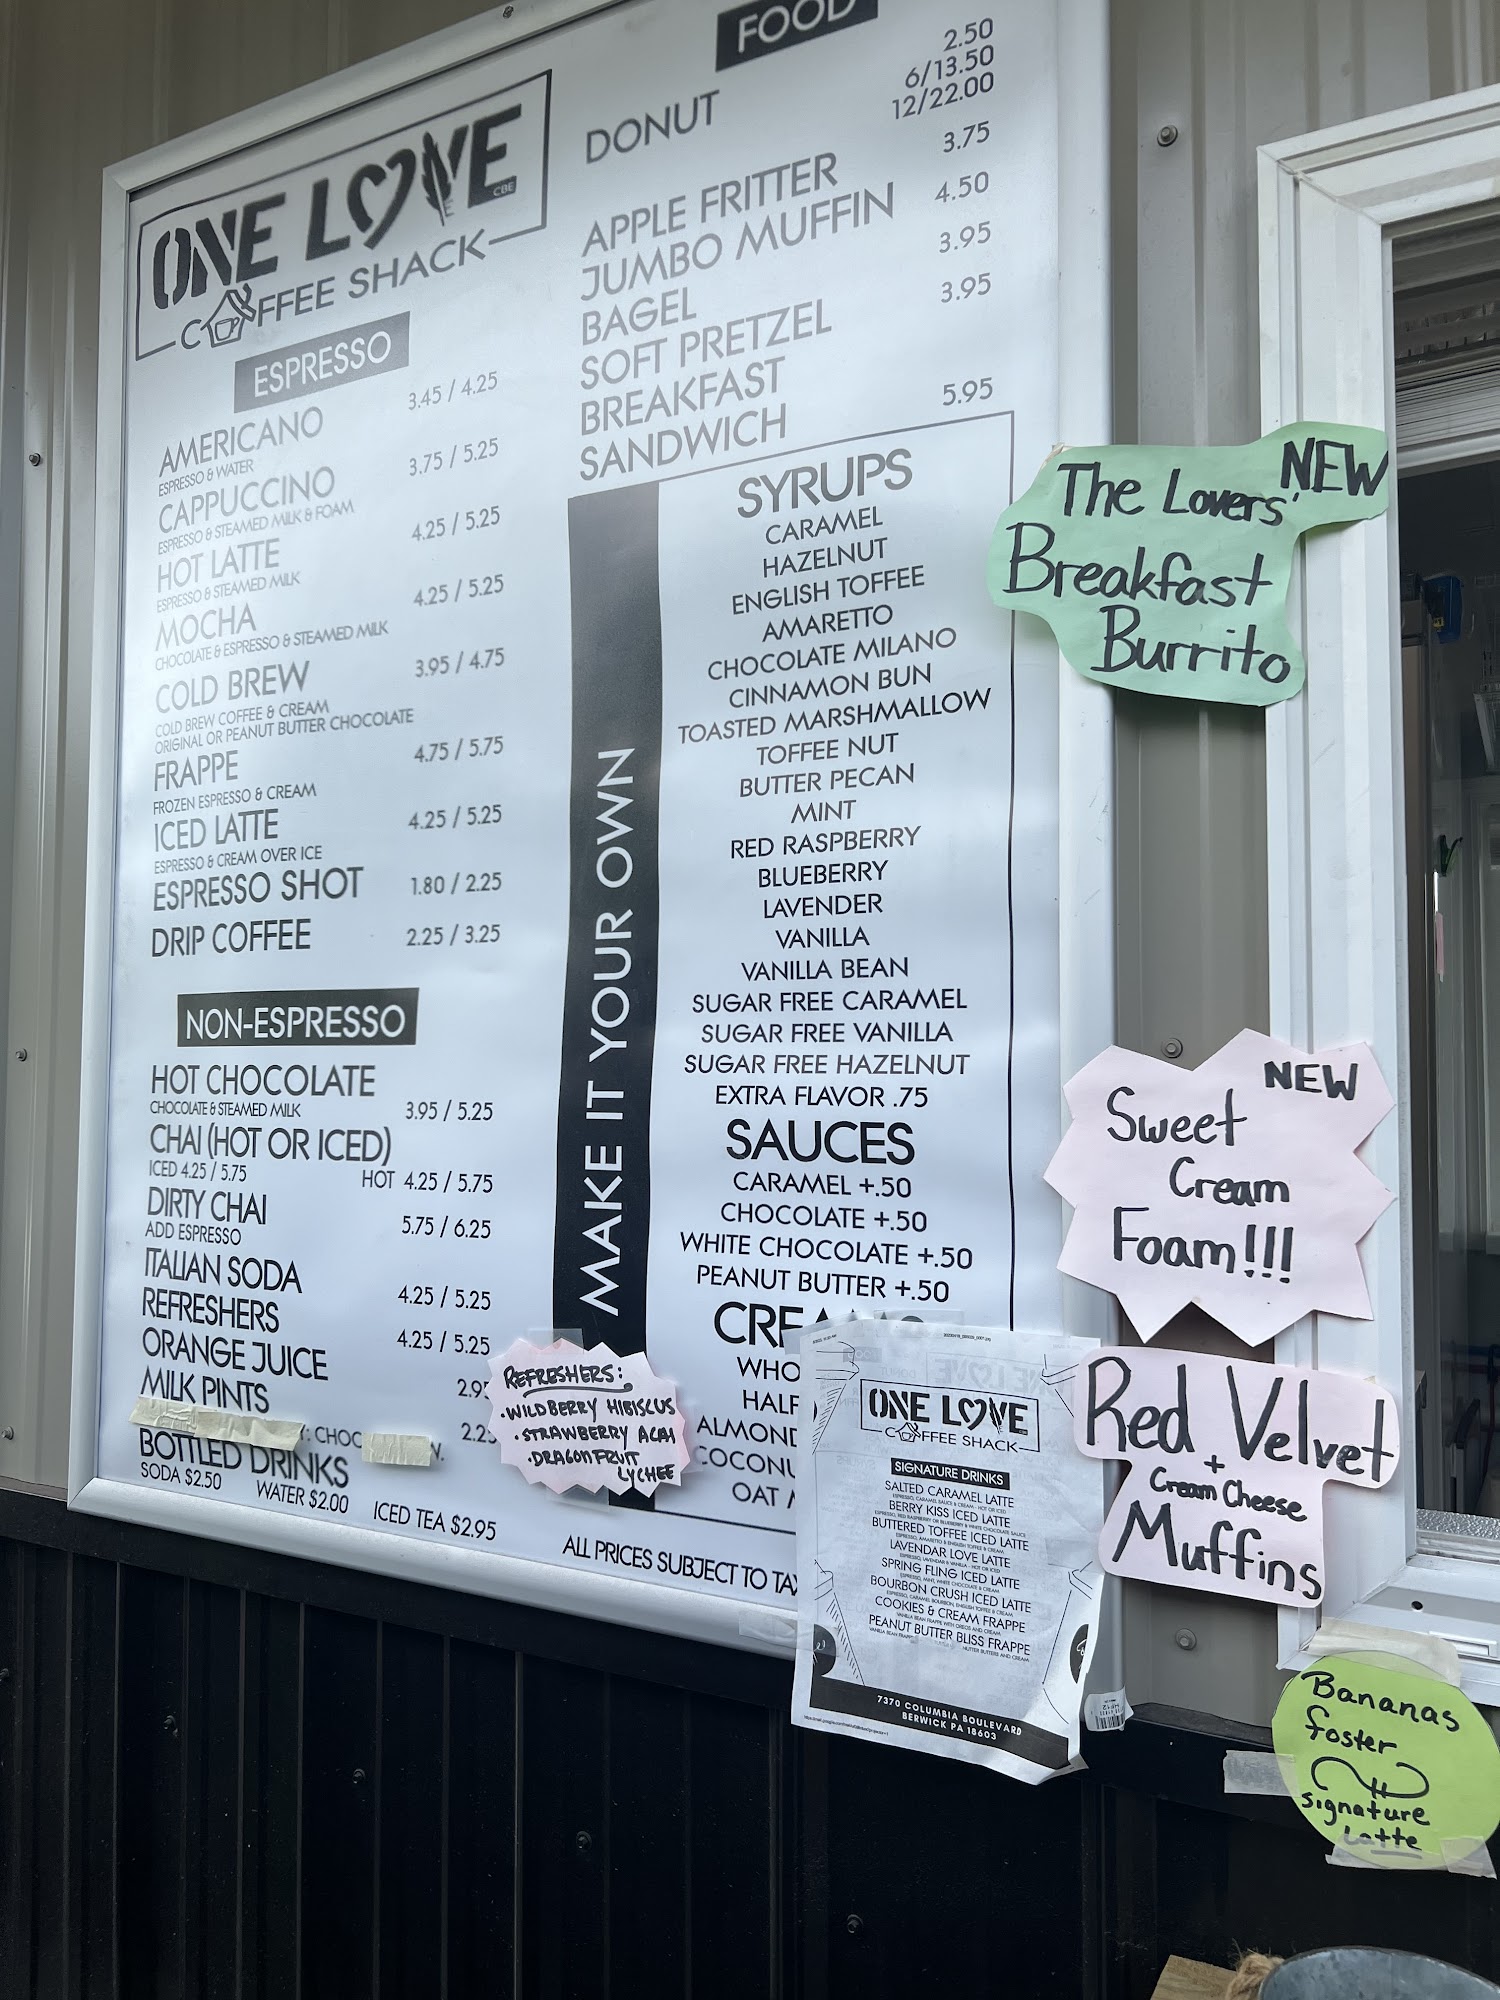 ONE LOVE
CBE
COFFEE SHACK
ESPRESSO
AMERICANO 3.45 / 4.25
ESPRESSO & WATER
CAPPUCCINO 3.75 / 5.25
ESPRESSO & STEAMED MILK & FOAM
HOT LATTE 4.25 / 5.25
ESPRESSO & STEAMED MILK
MOCHA 4.25 / 5.25
CHOCOLATE & ESPRESSO & STEAMED MILK
COLD BREW 3.95 / 4.75
COLD BREW COFFEE & CREAM
ORIGINAL OR PEANUT BUTTER CHOCOLATE
FRAPPE 4.75 / 5.75
FROZEN ESPRESSO & CREAM
ICED LATTE 4.25 / 5.25
ESPRESSO & CREAM OVER ICE
ESPRESSO SHOT 1.80 / 2.25
DRIP COFFEE 2.25 / 3.25
NON-ESPRESSO
HOT CHOCOLATE
CHOCOLATE & STEAMED MILK 3.95 / 5.25
CHAI (HOT OR ICED)
ICED 4.25 / 5.75 HOT 4.25 / 5.75
DIRTY CHAI 5.75 / 6.25
ADD ESPRESSO
ITALIAN SODA 4.25 / 5.25
REFRESHERS 4.25 / 5.25
ORANGE JUICE 2.95
MILK PINTS 2.25
: CHOC W.
BOTTLED DRINKS
SODA $2.50 WATER $2.00 ICED TEA $2.95
FOOD
DONUT 2.50
6/13.50
12/22.00
APPLE FRITTER 3.75
JUMBO MUFFIN 4.50
BAGEL 3.95
SOFT PRETZEL 3.95
BREAKFAST
SANDWICH 5.95
MAKE IT YOUR OWN
SYRUPS
CARAMEL
HAZELNUT
ENGLISH TOFFEE
AMARETTO
CHOCOLATE MILANO
CINNAMON BUN
TOASTED MARSHMALLOW
TOFFEE NUT
BUTTER PECAN
MINT
RED RASPBERRY
BLUEBERRY
LAVENDER
VANILLA
VANILLA BEAN
SUGAR FREE CARAMEL
SUGAR FREE VANILLA
SUGAR FREE HAZELNUT
EXTRA FLAVOR .75
SAUCES
CARAMEL +.50
CHOCOLATE +.50
WHITE CHOCOLATE +.50
PEANUT BUTTER +.50
CREA
WHO
HALF
ALMOND
COCONU
OAT
ALL PRICES SUBJECT TO TA
REFRESHERS:
• WILDBERRY HIBISCUS
• STRAWBERRY ACAI
• DRAGONFRUIT
LYCHEE
ONE LOVE
COFFEE SHACK
SIGNATURE DRINKS
SALTED CARAMEL LATTE
ESPRESSO, CARAMEL SAUCE & CREAM - HOT OR ICED
BERRY KISS ICED LATTE
ESPRESSO, RED RASPBERRY OR BLUEBERRY & WHITE CHOCOLATE SAUCE
BUTTERED TOFFEE ICED LATTE
ESPRESSO, AMARETTO & ENGLISH TOFFEE & CREAM
LAVENDAR LOVE LATTE
ESPRESSO, LAVENDAR & VANILLA - HOT OR ICED
SPRING FLING ICED LATTE
ESPRESSO, MINT, WHITE CHOCOLATE & CREAM
BOURBON CRUSH ICED LATTE
ESPRESSO, CARAMEL BOURBON, ENGLISH TOFFEE & CREAM
COOKIES & CREAM FRAPPE
VANILLA BEAN FRAPPE WITH OREOS AND CREAM
PEANUT BUTTER BLISS FRAPPE
VANILLA BEAN FRAPPE NUTTER BUTTERS AND CREAM
7370 COLUMBIA BOULEVARD
BERWICK PA 18603
NEW
The Lovers'
Breakfast
Burrito
NEW
Sweet
Cream
Foam!!!
Red Velvet
+
Cream Cheese
Muffins
Bananas
foster
signature
Latte